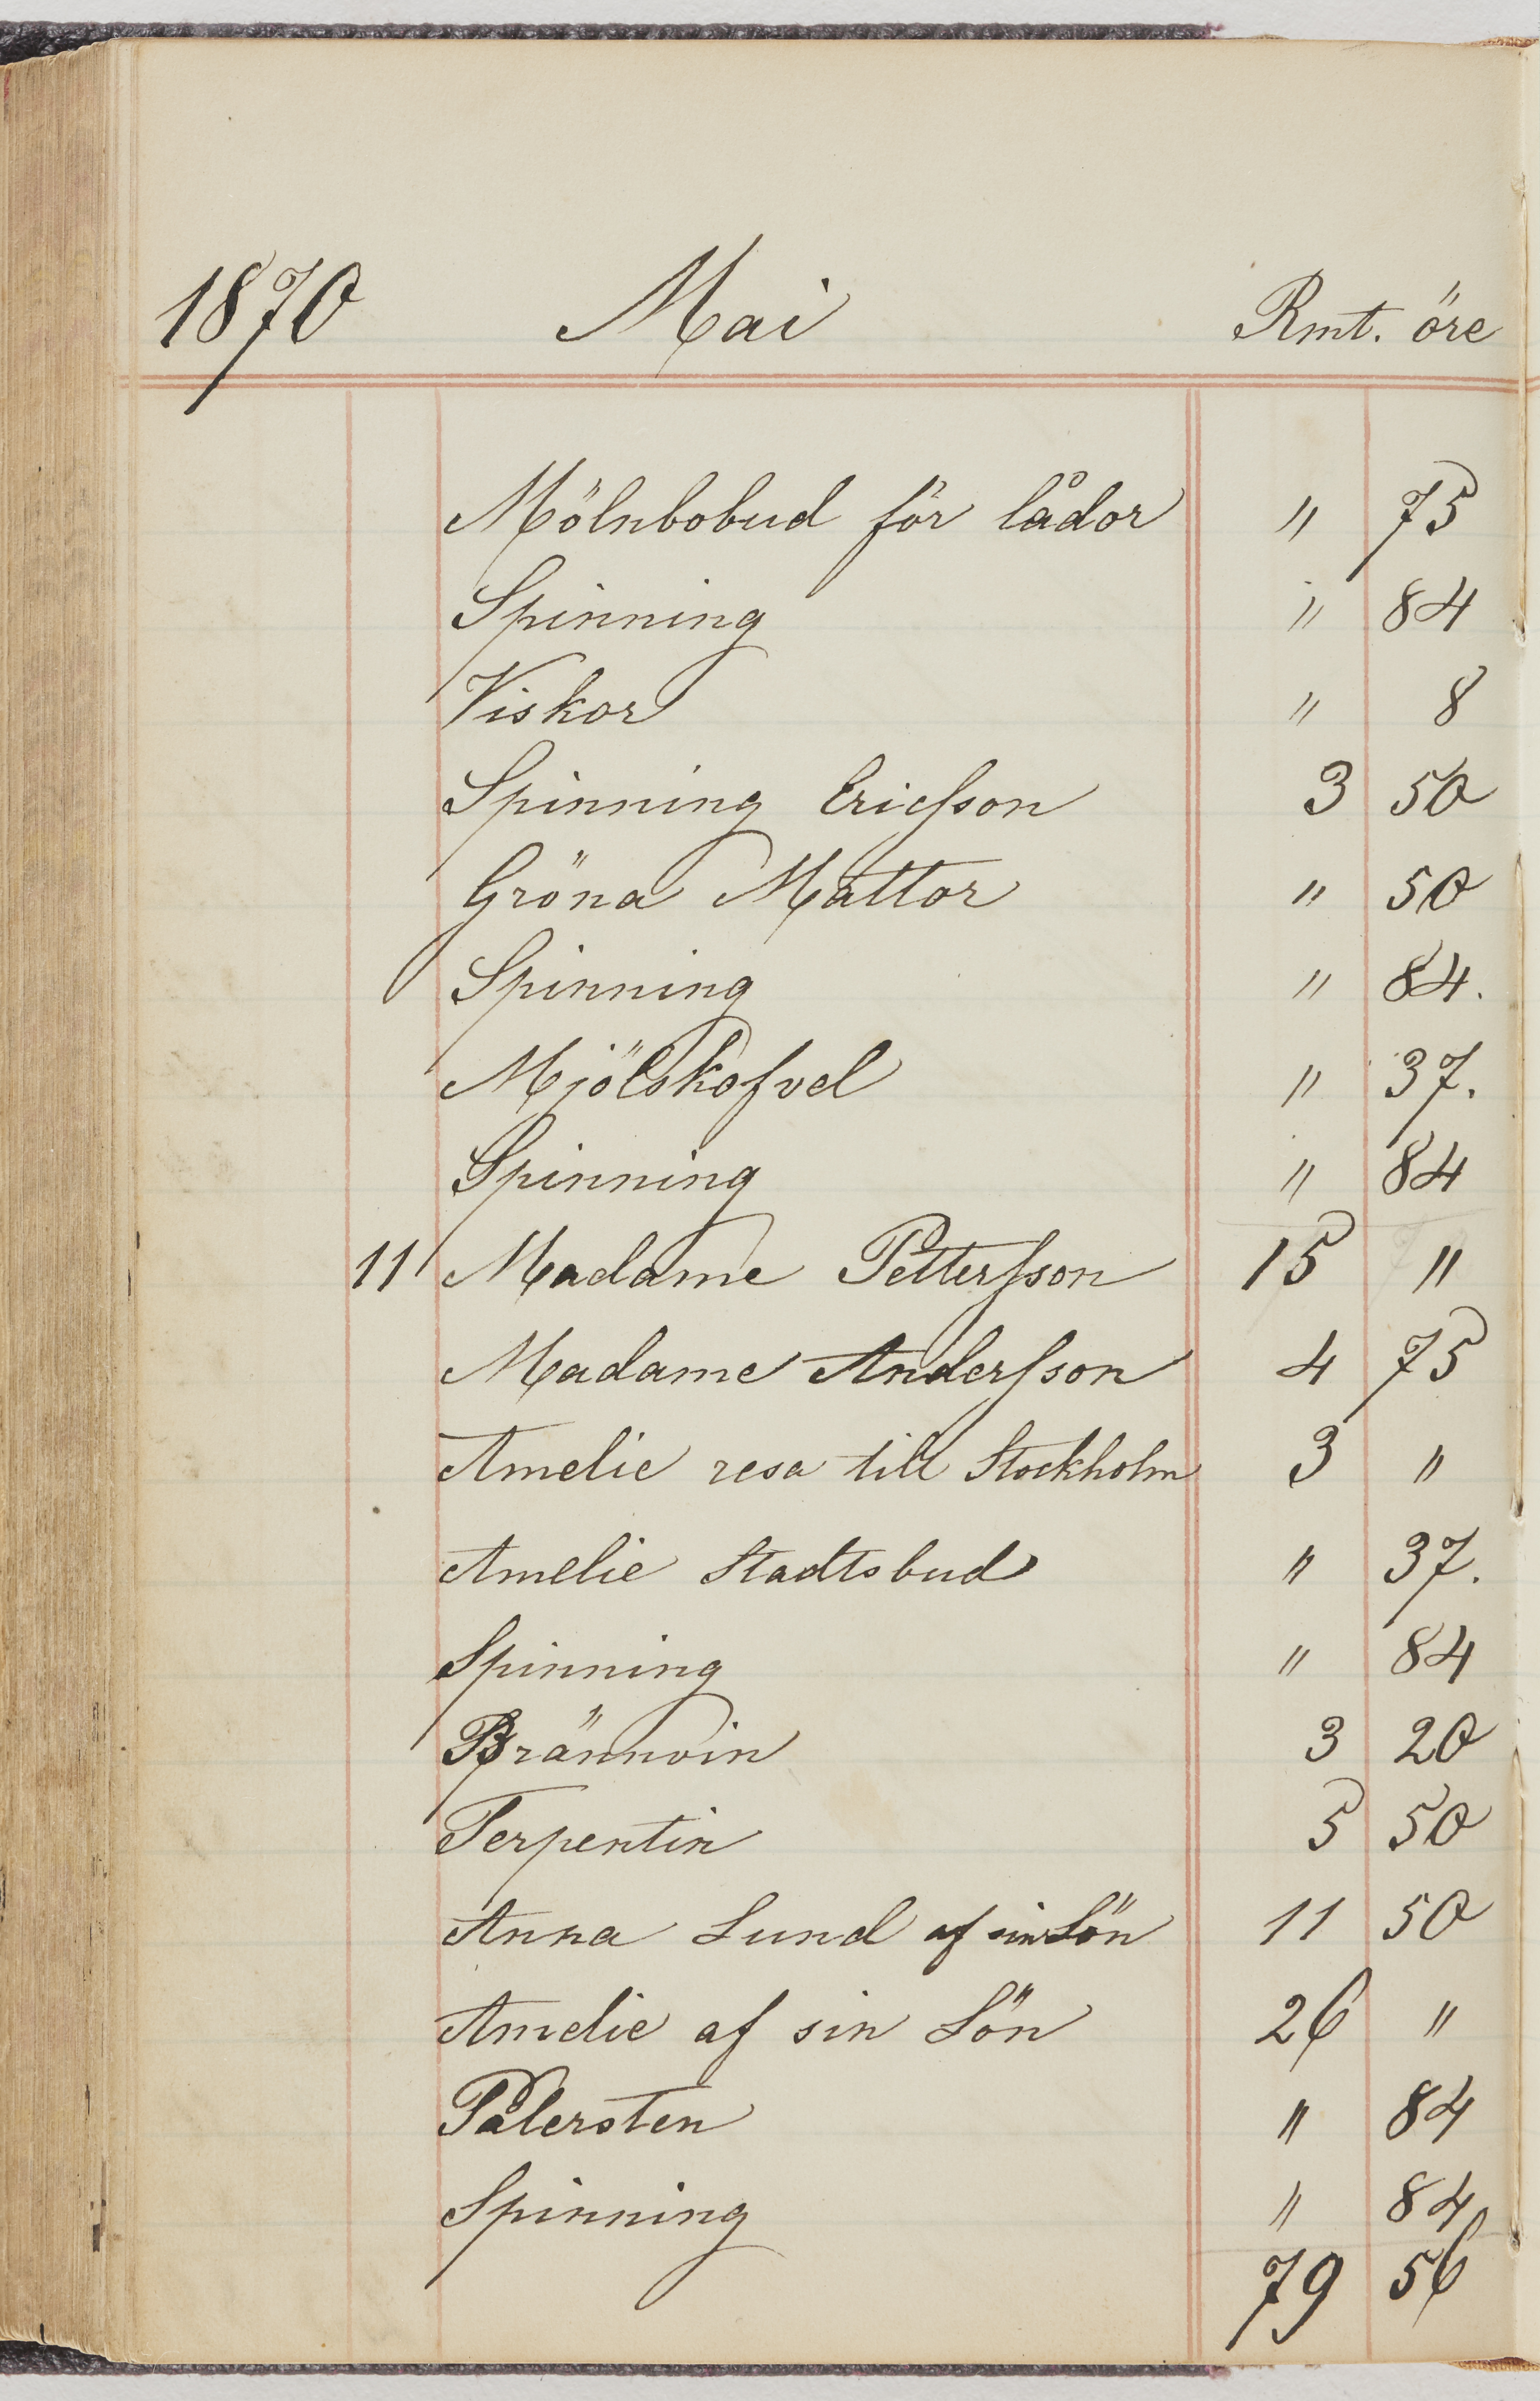 1870 Mai Rmt. öre
Mölnbobud för lådor " 75
Spinning " 84
Viskor " 8
Spinning Ericsson 3 50
Gröna Mattor " 50
Spinning " 84.
Mjölskofvel " 37.
Spinning " 84
11 Madame Pettersson 15 "
Madame Andersson 4 75
Amelie resa till Stockholm 3 "
Amelie Stadtsbud " 37.
Spinning " 84
Brännvin 3 20
Terpentin 5 50
Anna Lund af sin Lön 11 50
Amelie af sin Lön 26 "
Pålersten " 84
Spinning " 84
79 56